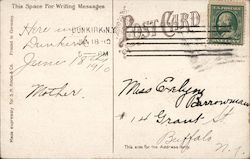 This Space For Writing Messages
POST CARD
Here in
Dunkirk
June 18th
1910
Mother.
DUNKIRK, N.Y.
18
Miss Evelyn
Barrowman
#14 Grant St
Buffalo
N.Y.
This side for the Address
Made expressly for S.H. Knox & Co.
Printed in Germany